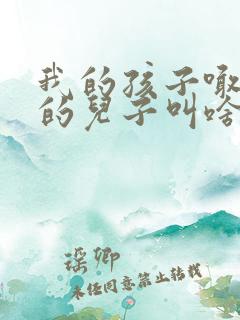 我的孩子噉
的兒子叫啥
瑶卿
未经同意禁止转载